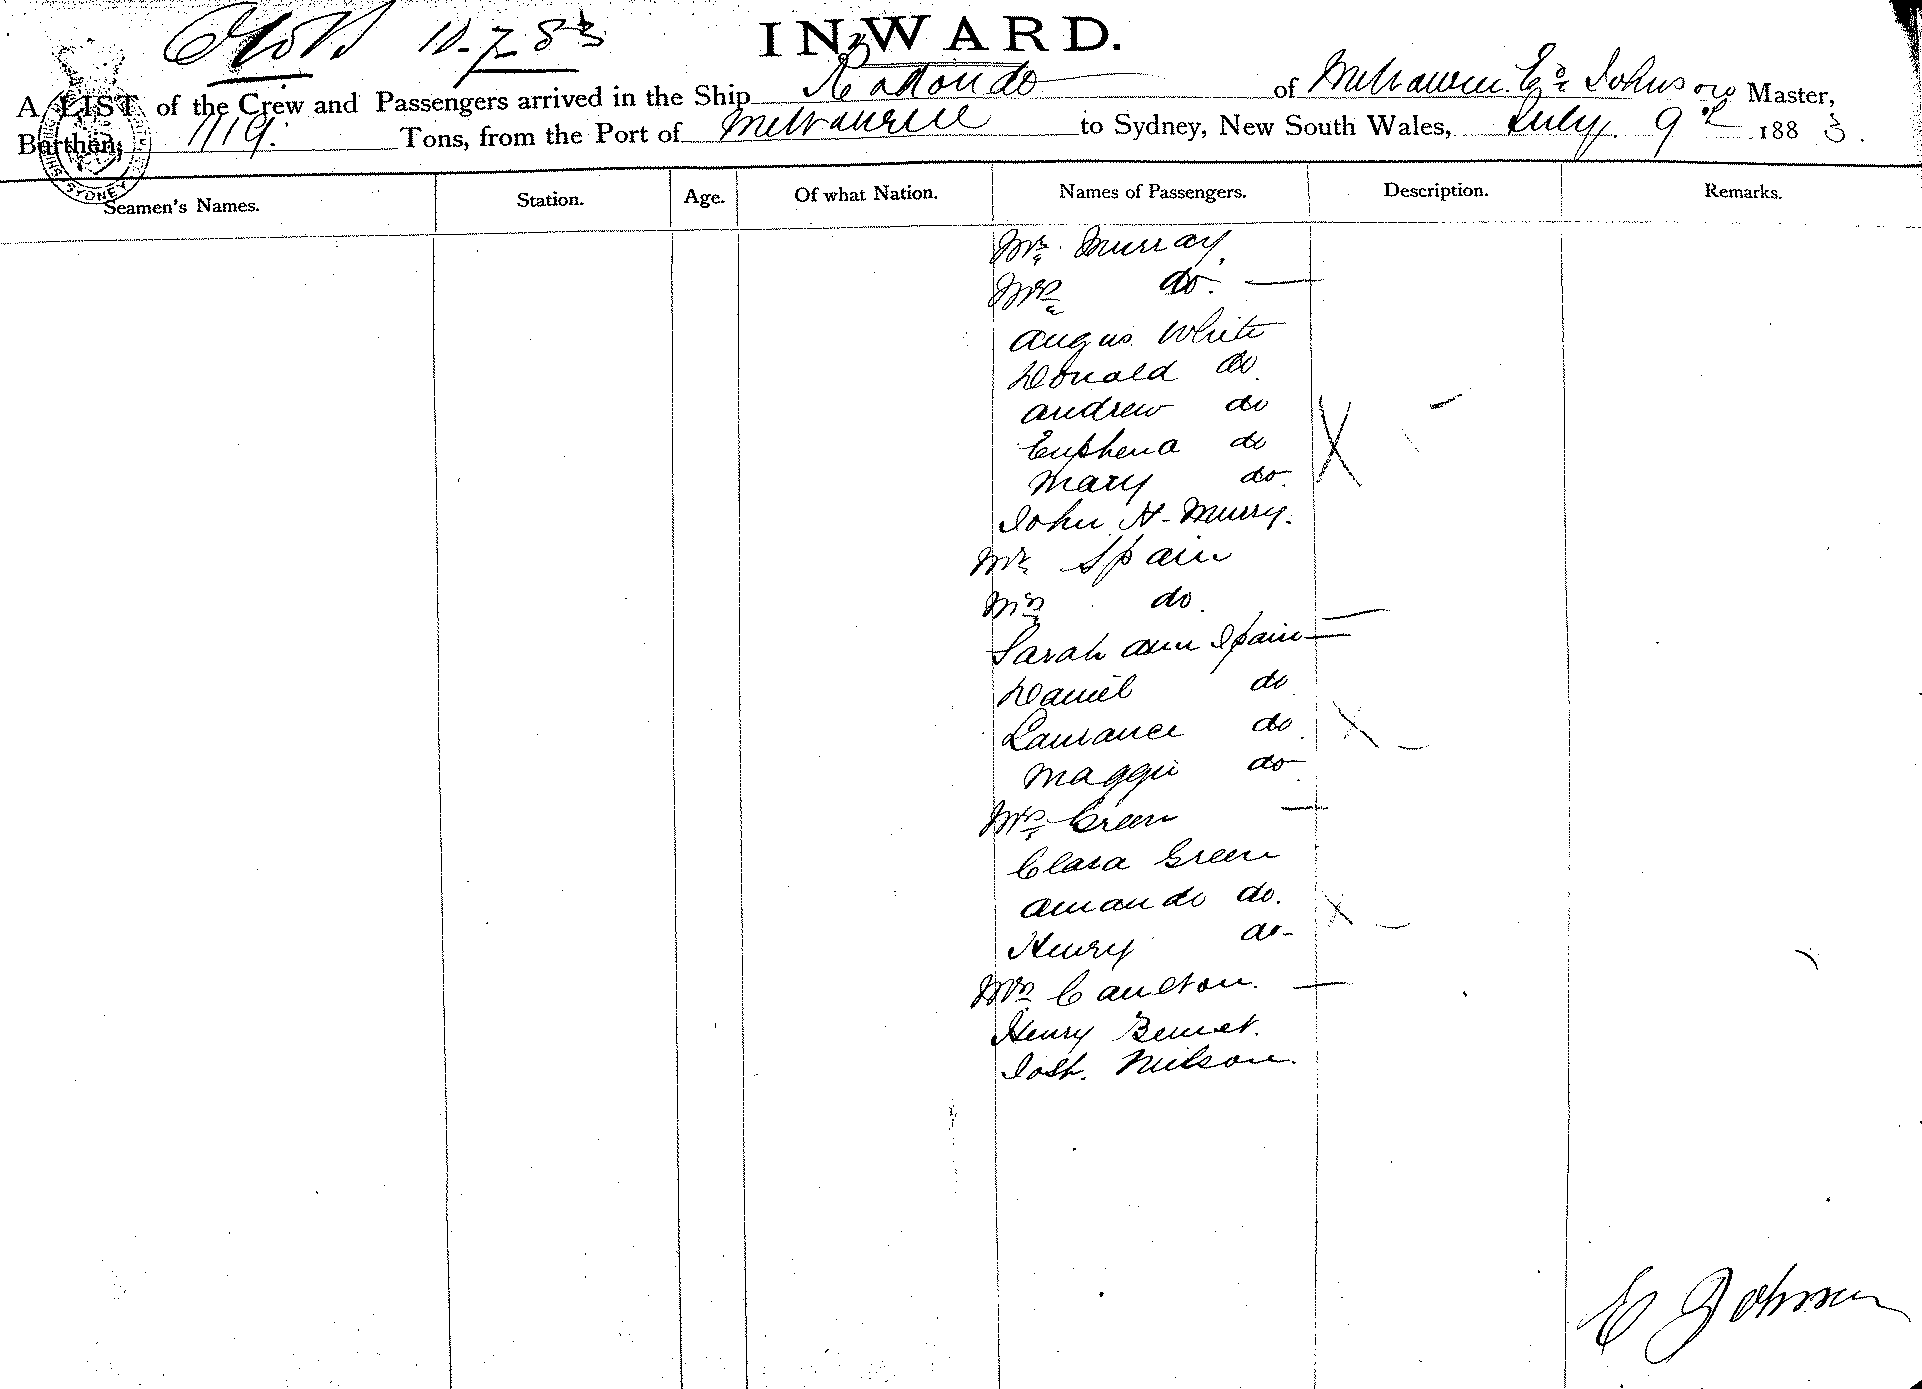 10-7-83
INWARD.
A LIST of the Crew and Passengers arrived in the Ship Rodondo of Melbourne Ed Johnson Master,
Burthen, 1119. Tons, from the Port of Melbourne to Sydney, New South Wales, July 9th 1883.
Seamen's Names. Station. Age. Of what Nation. Names of Passengers. Description. Remarks.
SYDNEY
Mr. Murray
Mrs do. —
Angus White
Donald do
Andrew do
Euphena do X
Mary do.
John H. Murry.
Mr Spain
Mrs do.
Sarah Ann Spain —
Daniel do
Laurance do X
Maggie do
Mrs Green —
Clara Green
Amando do. X
Henry do-
Mrs Caulton. —
Henry Bennet.
Josh. Neilson.
E Johnson